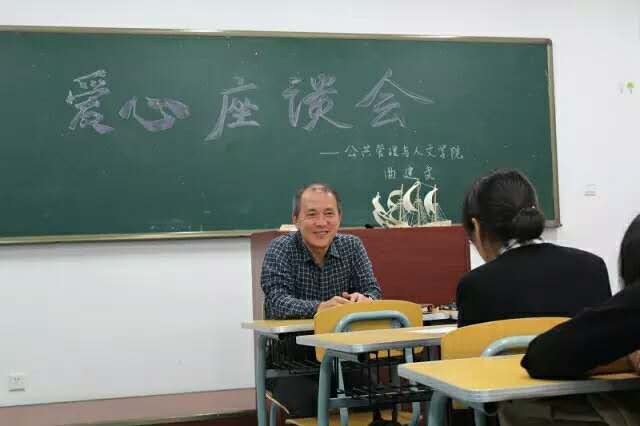 爱心座谈会
——公共管理与人文学院